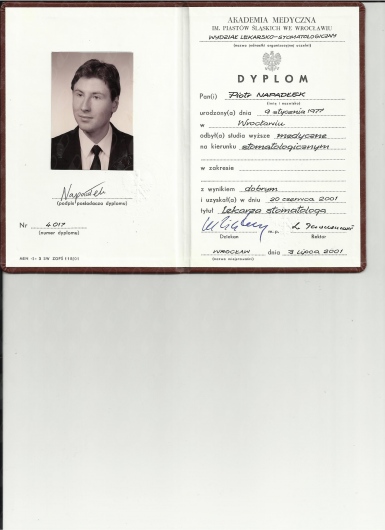 Napadłek
(podpis posiadacza dyplomu)
Nr 4017
(numer dyplomu)
AKADEMIA MEDYCZNA
IM. PIASTÓW ŚLĄSKICH WE WROCŁAWIU
WYDZIAŁ LEKARSKO-STOMATOLOGICZNY
(nazwa jednostki organizacyjnej uczelni)
DYPLOM
Pan(i) Piotr NAPADŁEK
(imię i nazwisko)
urodzony(a) dnia 9 stycznia 1977
w Wrocławiu
odbył(a) studia wyższe medyczne
na kierunku stomatologicznym
w zakresie
z wynikiem dobrym
i uzyskał(a) w dniu 20 czerwca 2001
tytuł Lekarza stomatologa
Dziekan m.p. Rektor
WROCŁAW dnia 3 lipca 2001